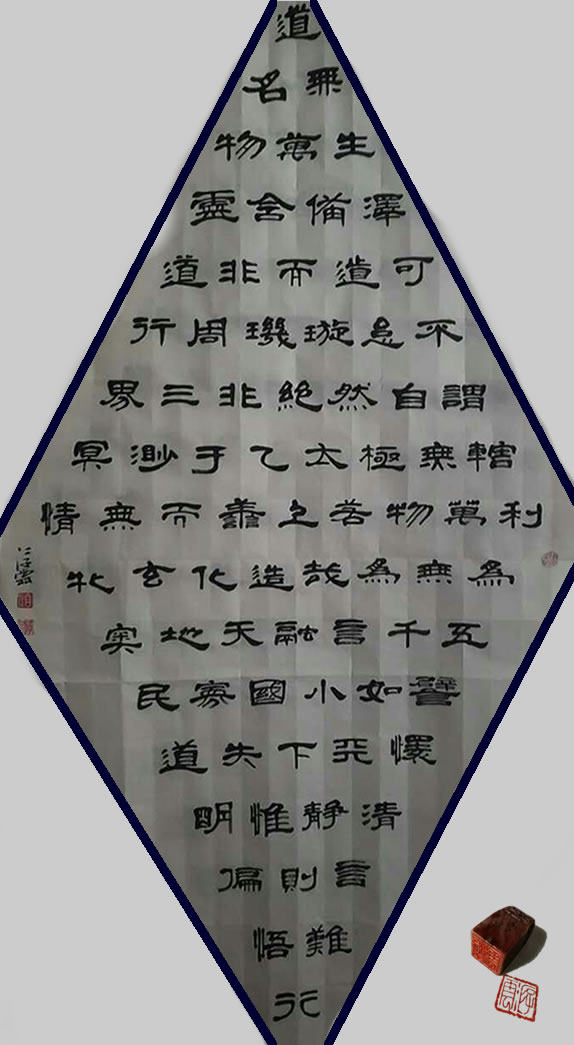 道
無名
生萬物
澤備舍靈
可造而非道
不怠璇璣周行
謂自然絶非三界
轄無極太乙于渺冥
利萬物若之善而無情
為無為哉造化玄牝
五千言融天地実
譬如小國寡民
懷天下失道
清靜惟明
言則偏
難悟
行